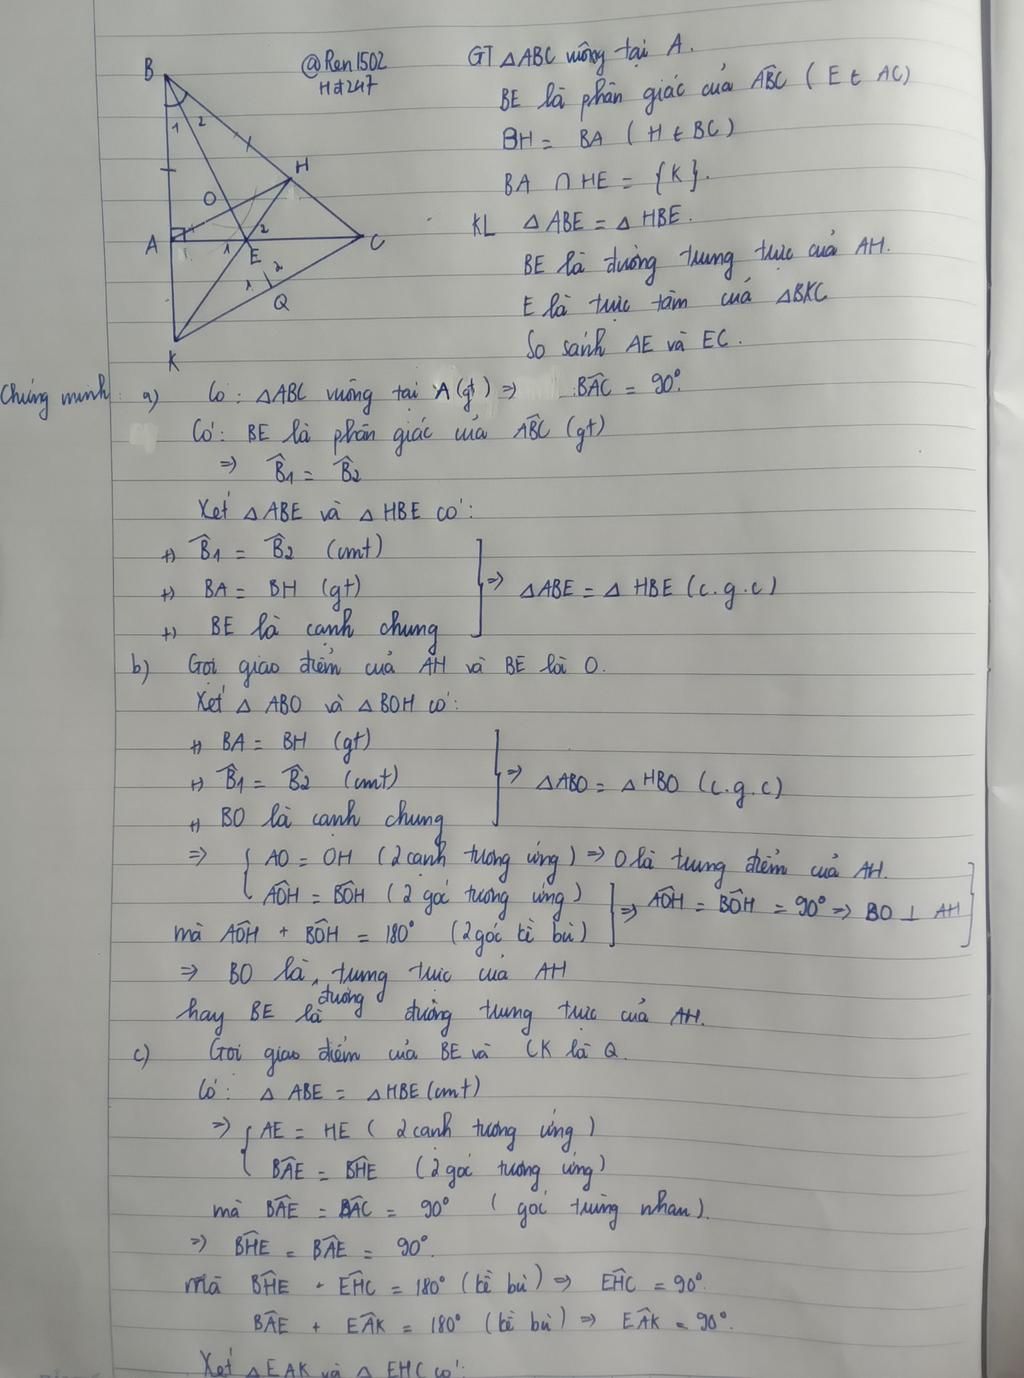 B
@Ren1502
Hd247
GT △ABC vuông tại A.
BE là phân giác của ABC (E ∈ AC)
BH = BA (H ∈ BC)
BA ∩ HE = {K}.
KL △ABE = △HBE.
BE là đường trung trực của AH.
E là trực tâm của △BKC
So sánh AE và EC.
1 2
H
O
A 1 1 E 2 C
1 2
Q
K
Chứng minh: a) Có: △ABC vuông tại A (gt) => BAC = 90°.
Có: BE là phân giác của ABC (gt)
=> B̂1 = B̂2
Xét △ABE và △HBE có:
+) B̂1 = B̂2 (cmt)
+) BA = BH (gt)
+) BE là cạnh chung
=> △ABE = △HBE (c.g.c)
b) Gọi giao điểm của AH và BE là O.
Xét △ABO và △BOH có:
+) BA = BH (gt)
+) B̂1 = B̂2 (cmt)
+) BO là cạnh chung
=> △ABO = △HBO (c.g.c)
=> { AO = OH (2 cạnh tương ứng) => O là trung điểm của AH.
AOH = BOH (2 góc tương ứng)
mà AOH + BOH = 180° (2 góc kề bù)
=> AOH = BOH = 90° => BO ⊥ AH
=> BO là đường trung trực của AH
hay BE là đường trung trực của AH.
c) Gọi giao điểm của BE và CK là Q.
Có: △ABE = △HBE (cmt)
=> { AE = HE (2 cạnh tương ứng)
BAE = BHE (2 góc tương ứng)
mà BAE = BAC = 90° (góc trùng nhau).
=> BHE = BAE = 90°.
mà BHE + EHC = 180° (kề bù) => EHC = 90°.
BAE + EAK = 180° (kề bù) => EAK = 90°.
Xét △EAK và △EHC có: